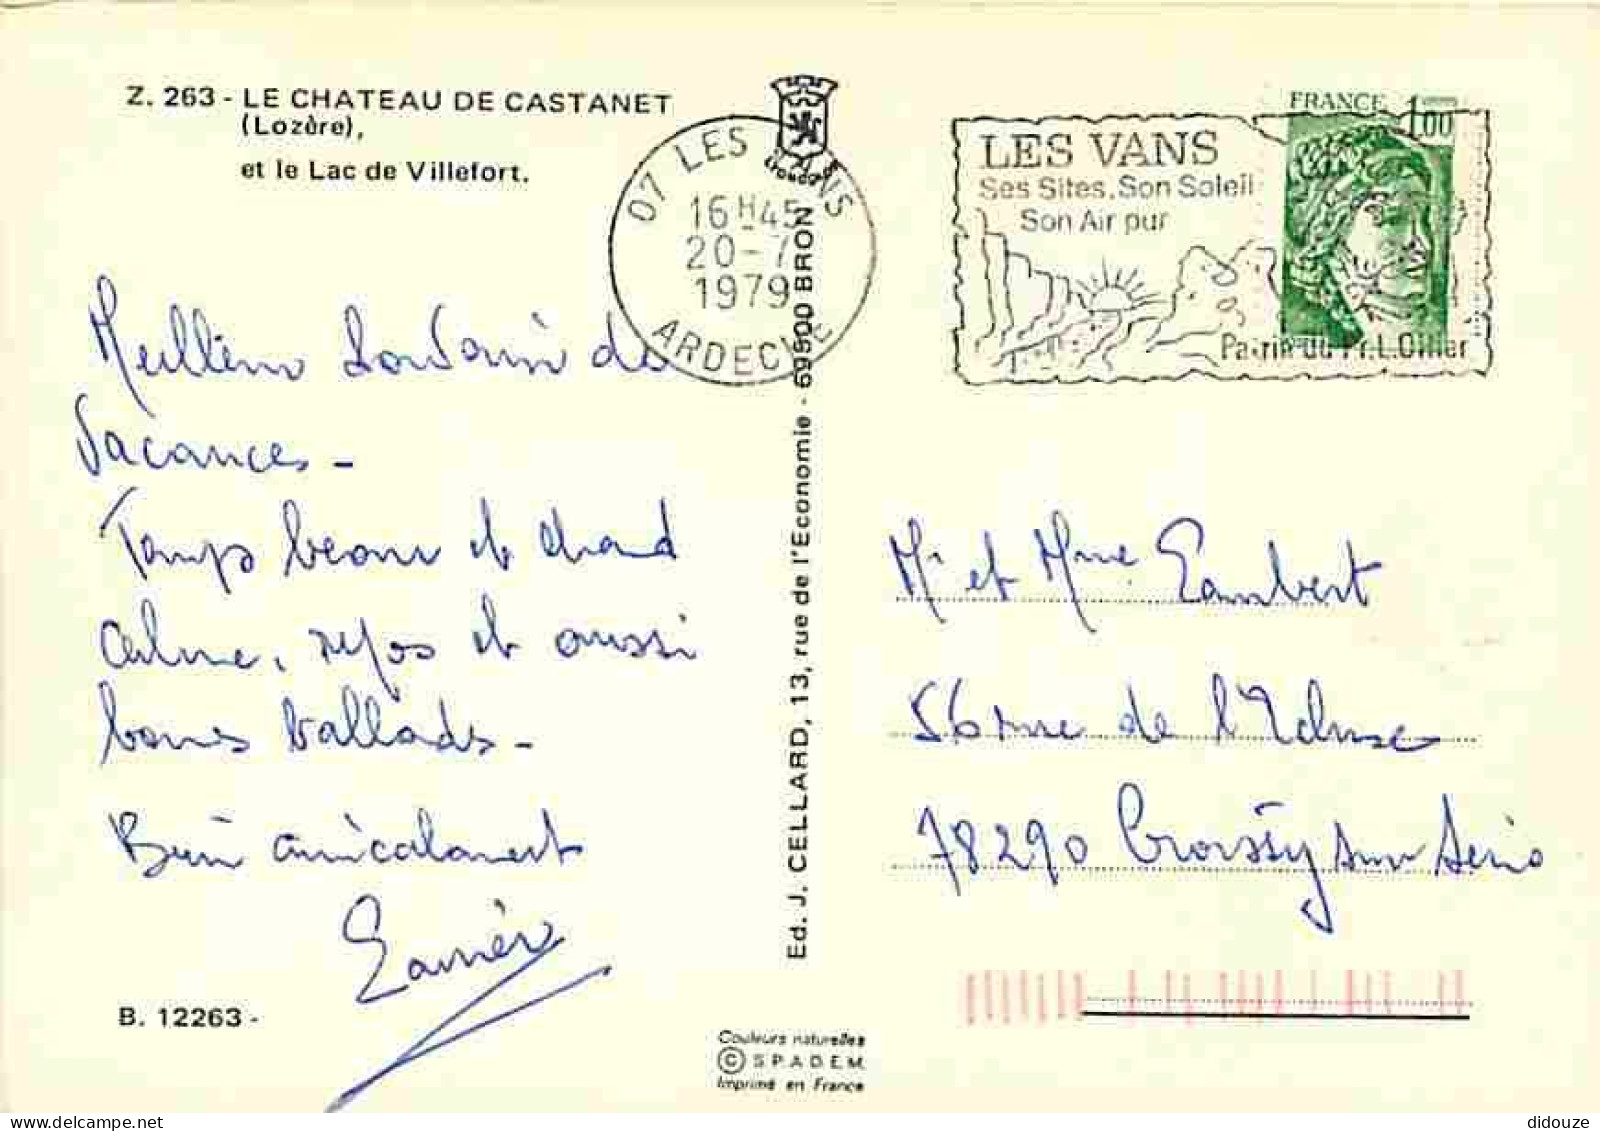 Z. 263 - LE CHATEAU DE CASTANET
(Lozère),
et le Lac de Villefort.
07 LES VANS
16 H 45
20-7
1979
ARDECHE
LES VANS
Ses Sites, Son Soleil
Son Air pur
Patrie du Pr. L. Ollier
FRANCE 1,00
Meilleur Souvenir de
Vacances -
Temps beau et chaud
calme, repos et aussi
bones ballades -
Bien amicalement
B. 12263 -
Ed. J. CELLARD, 13, rue de l'Economie - 69500 BRON
Mr et Mme Lambert
56 rue de l'Ecluse
78290 Croissy sur Seine
Couleurs naturelles
© S.P.A.D.E.M.
Imprimé en France
delcampe.net
didouze